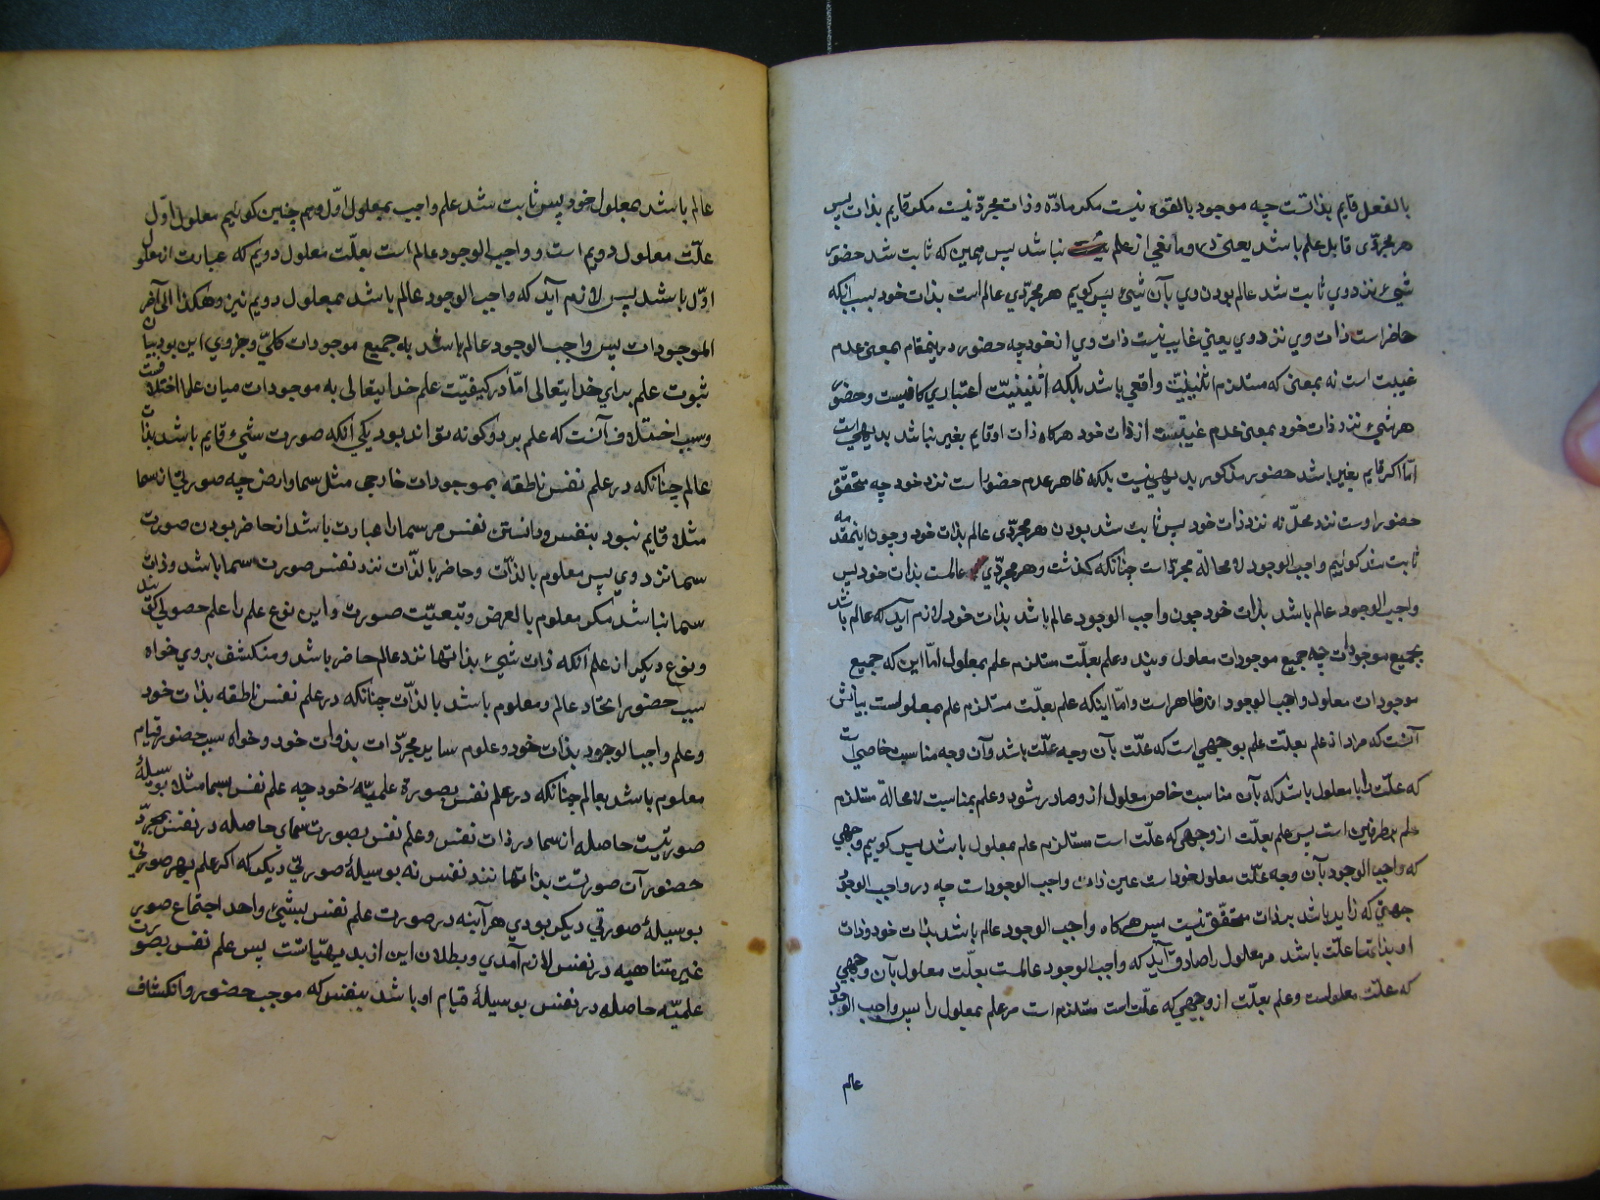 بالفعل قایم بذاتست چه موجود بالقوه نیست مکر مادّه و ذات مجرّد نیست مکر قایم بذات پس
هر مجرّدی قابل علم باشد یعنی در او مانعی از علم نباشد پس همین که ثابت شد حضور
شیء نزد وی ثابت شد عالم بودن وی بآن شیء پس کوییم هر مجرّدی عالم است بذات خود بسبب آنکه
حاضر است ذات وی نزد وی یعنی غایب نیست ذات وی از خود چه حضور درینمقام بمعنی عدم
غیبت است نه بمعنی که مستلزم اثنینیّت واقعی باشد بلکه اثنینیّت اعتباری کافیست و حضور
هر شیء نزد ذات خود بمعنی عدم غیبتست از ذات خود هرکاه ذات او قایم بغیر نباشد بدیهی است
امّا اکر قایم بغیر باشد حضور مذکور بدیهی نیست بلکه ظاهر عدم حضور است نزد خود چه متحقّق
حضور اوست نزد محلّ نه نزد ذات خود پس ثابت شد بودن هر مجرّدی عالم بذات خود و چون اینمقدمه
ثابت شد کوئیم واجب الوجود لا محالة مجرّد است چنانکه کذشت و هر مجرّدی عالمست بذات خود پس
واجب الوجود عالم باشد بذات خود چون واجب الوجود عالم باشد بذات خود لازم آید که عالم باشد
بجمیع موجودات چه جمیع موجودات معلول ویند و علم بعلّت مستلزم علم بمعلول امّا این که جمیع
موجودات معلول واجب الوجود اند ظاهر است و امّا اینکه علم بعلّت مستلزم علم بمعلولست بیانش
آنست که مراد از علم بعلّت علم بوجهی است که علّت بآن وجه علّت باشد و آن وجه مناسبت خاصی است
که علّت را با معلول باشد که بآن مناسبت خاص معلول از و صادر شود و علم بمناسبت لا محالة مستلزم
علم بطرفین است پس علم بعلّت از وجهی که علّت است مستلزم علم بمعلول باشد پس کوییم وجهی
که واجب الوجود بآن وجه علّت معلول خود است عین ذات واجب الوجود است چه در واجب الوجود
جهتی که زاید باشد بر ذات متحقّق نیست پس هرکاه واجب الوجود عالم باشد بذات خود و ذات
او بذاتها علّت باشد مر معلول را صادق آید که واجب الوجود عالمست بعلّت معلول بآن وجهی
که علّت معلولست و علم بعلّت از وجهی که علّت است مستلزم است مر علم بمعلول را پس واجب الوجود
عالم
عالم باشد بمعلول خود پس ثابت شد علم واجب بمعلول اوّل و هم چنین کوئیم معلول اوّل
علّت معلول دویم است و واجب الوجود عالم است بعلّت معلول دویم که عبارت از معلول
اوّل باشد پس لازم آید که واجب الوجود عالم باشد بمعلول دویم نیز و هکذا الی آخر
الموجودات پس واجب الوجود عالم باشد به جمیع موجودات کلّی و جزوی این بود بیان
ثبوت علم برای خدایتعالی امّا در کیفیّت علم خدایتعالی به موجودات میان علما اختلافست
و سبب اختلاف آنست که علم بر دو کونه تواند بود یکی آنکه صورت شیء قایم باشد بذات
عالم چنانکه در علم نفس ناطقه بموجودات خارجی مثل سما و ارض چه صورتی از سما
مثلا قایم نبود بنفس و دانستن نفس مر سما را عبارت باشد از حاضر بودن صورت
سما نزد وی پس معلوم بالذّات و حاضر بالذّات نزد نفس صورت سما باشد و ذات
سما نباشد مکر معلوم بالعرض و تبعیّت صورت و این نوع علم را علم حصولی کویند
و نوع دیکر از علم آنکه ذات شیء بذاتها نزد عالم حاضر باشد و منکشف بر وی خواه
سبب حضور اتحاد عالم و معلوم باشد بالذّات چنانکه در علم نفس ناطقه بذات خود
و علم واجب الوجود بذات خود و علوم سایر مجرّدات بذوات خود و خواه سبب حضور قیام
معلوم باشد بعالم چنانکه در علم نفس بصورة علمیّهٔ خود چه علم نفس بسما مثلا بوسیلهٔ
صورتیست حاصله از سما در ذات نفس و علم نفس بصورت سمای حاصله در نفس بمجرّد
حضور آن صورتست بذاتها نزد نفس نه بوسیلهٔ صورتی دیکر که اکر علم بهر صورتی
بوسیلهٔ صورتی دیکر بودی هر آینه در صورت علم نفس بشیء واحد اجتماع صور
غیر متناهیه در نفس لازم آمدی و بطلان این از بدیهیّاتست پس علم نفس بصورت
علمیّه حاصله در نفس بوسیلهٔ قیام او باشد بنفس که موجب حضور و انکشاف